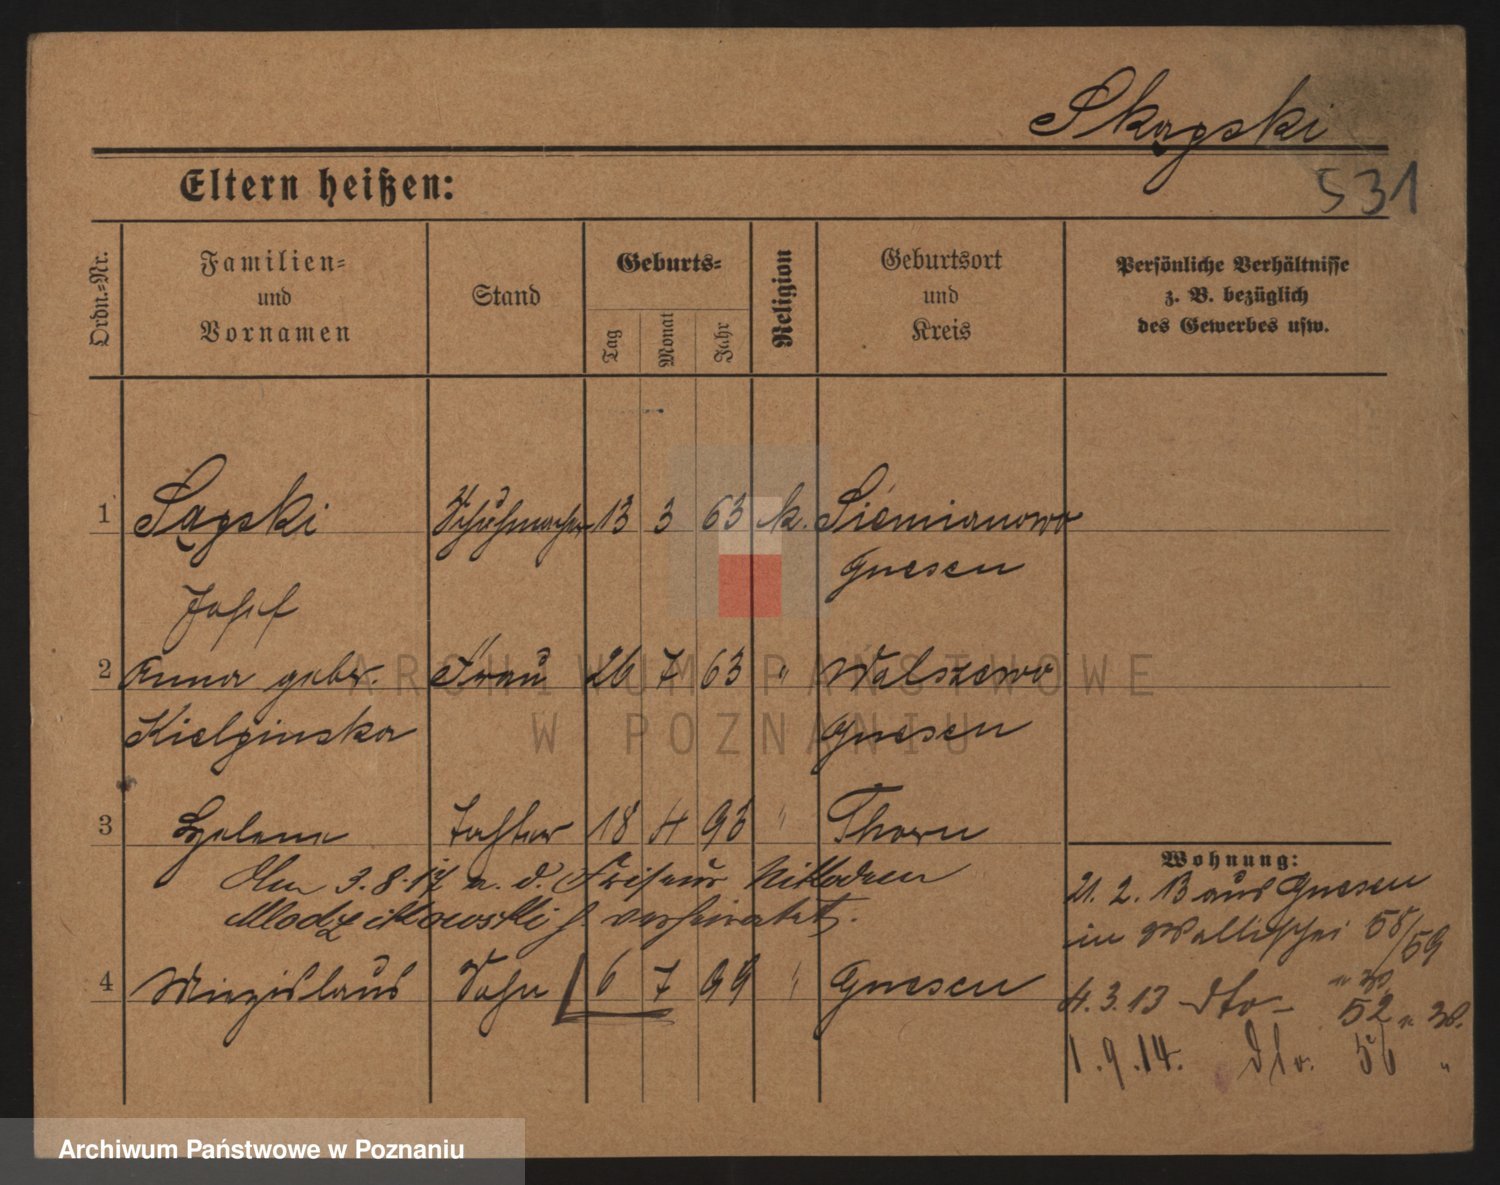 Skąpski
531
Eltern heißen:
Ordn.-Nr.
Familien-
und
Vornamen
Stand
Geburts-
Tag
Monat
Jahr
Religion
Geburtsort
und
Kreis
Persönliche Verhältnisse
z. B. bezüglich
des Gewerbes usw.
1 Schuhmacher 13 3 63 k. Siemianowo
Gnesen
Josef
2 Anna gebr. Frau 26 7 63 " Welszewo
Kielpinska Gnesen
3 Helene Tochter 18 4 93 " Thorn
Am 3.8.17 m. d. Friseur
verheiratet.
4 Miezislaus Sohn 6 7 99 " Gnesen
Wohnung:
21. 2. 13 aus Gnesen
in Wallischei 58/59
4. 3. 13 dto- 52
1. 9. 14. dto. 56 "
ARCHIWUM PAŃSTWOWE
W POZNANIU
Archiwum Państwowe w Poznaniu